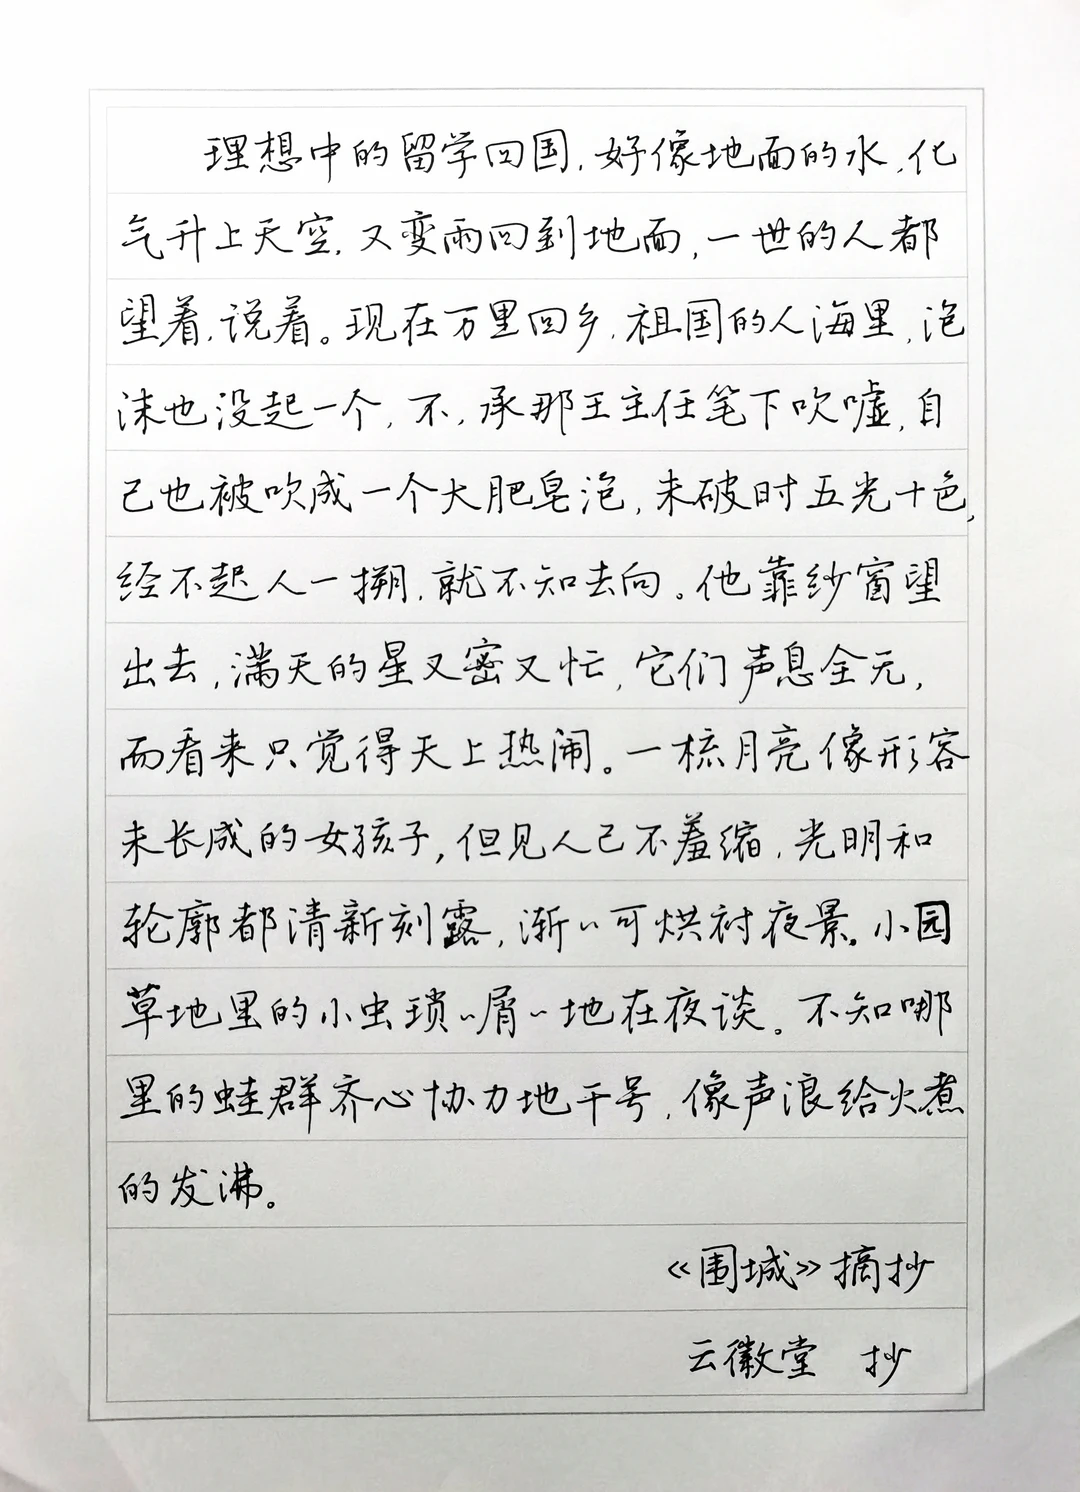 理想中的留学回国，好像地面的水，化
气升上天空，又变雨回到地面，一世的人都
望着，说着。现在万里回乡，祖国的人海里，泡
沫也没起一个，不，承那王主任笔下吹嘘，自
己也被吹成一个大肥皂泡，未破时五光十色，
经不起人一搠，就不知去向。他靠纱窗望
出去，满天的星又密又忙，它们声息全无，
而看来只觉得天上热闹。一梳月亮像形容
未长成的女孩子，但见人已不羞缩，光明和
轮廓都清新刻露，渐〃可烘衬夜景。小园
草地里的小虫琐〃屑〃地在夜谈。不知哪
里的蛙群齐心协力地干号，像声浪给火煮
的发沸。
《围城》摘抄
云徽堂 抄